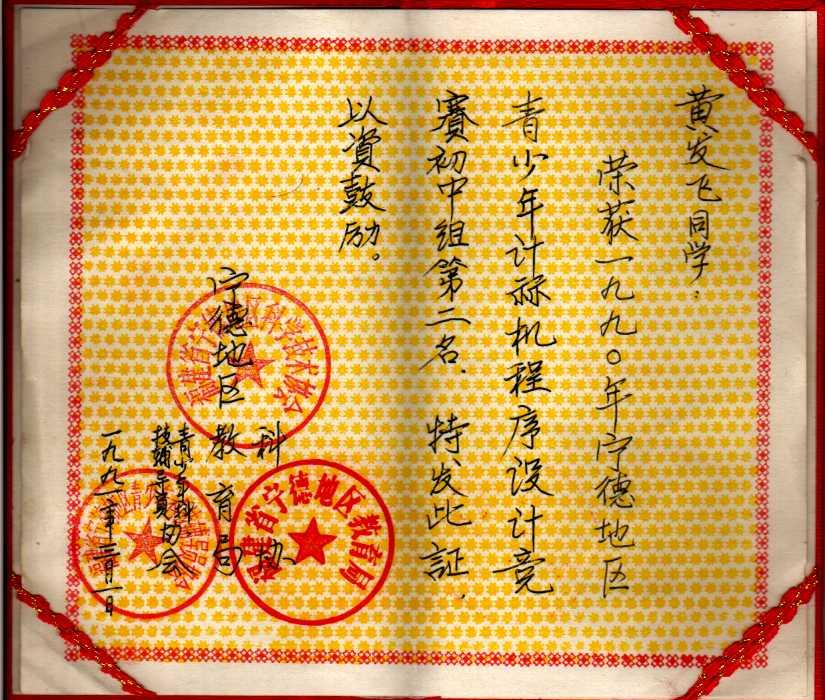 黄发飞同学：
荣获一九九〇年宁德地区
青少年计祘机程序设计竞
赛初中组第二名．特发此証，
以资鼓励。
宁德地区
科协
教育局
青少年科
技辅导员协会
一九九一年三月一日
福建省宁德地区科学技术协会
福建省宁德地区教育局